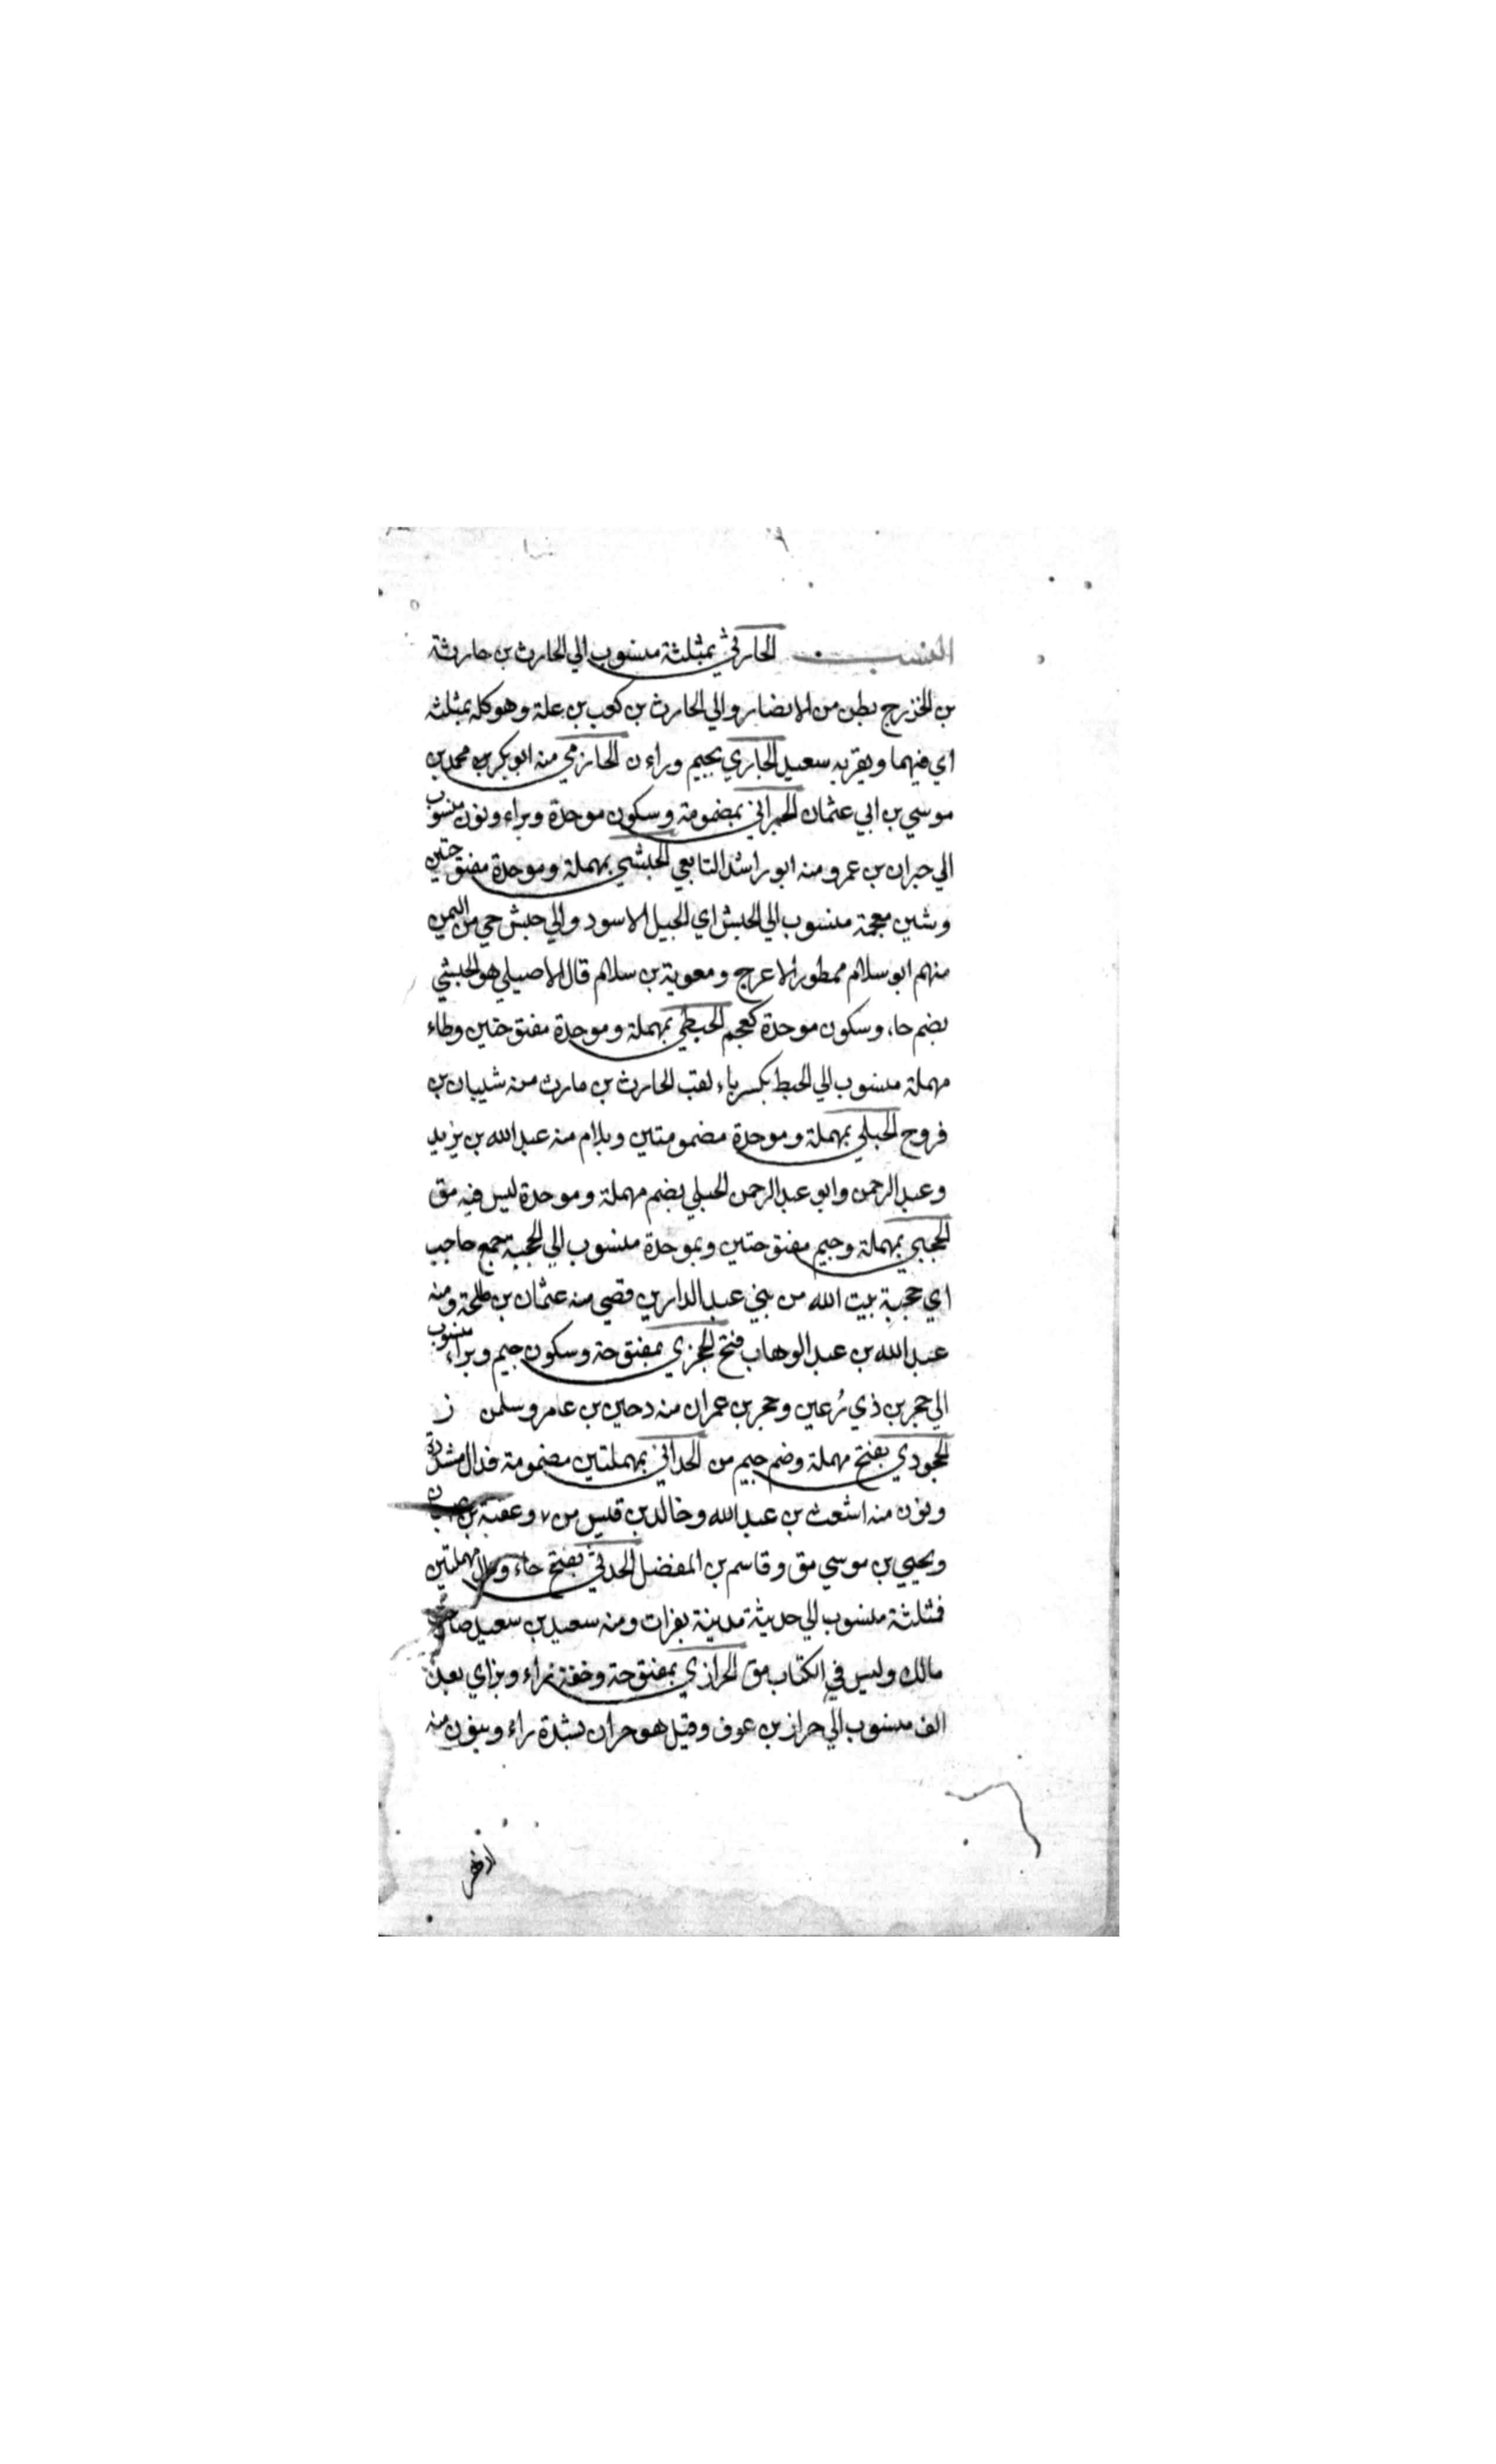 النسب الحارثي بمثلثة منسوب الي الحارث بن حارثة
بن الخزرج بطن من الانصار والي الحارث بن كعب بن علة وهو كله بمثلثة
اي فيهما ويقربه سعيد الجاري بجيم وراء ن الحازمي منه ابو بكر بن محمد بن
موسي بن ابي عثمان الحبراني بمضمومة وسكون موحدة وبراء ونون منسوب
الي حبران بن عمرو منه ابو راشد التابعي الحبشي بمهملة وموحدة مفتوحتين
وشين معجمة منسوب الي الحبش اي الجيل الاسود والي حبش حي من اليمن
منهم ابو سلام ممطور الاعرج ومعوية بن سلام قال الاصيلي هو الحبشي
بضم حاء وسكون موحدة كعجم الحبطي بمهملة وموحدة مفتوحتين وطاء
مهملة منسوب الي الحبط بكسر باء لقب الحارث بن مارث منه شيبان بن
فروخ الحبلي بمهملة وموحدة مضمومتين وبلام منه عبد الله بن يزيد
وعبد الرحمن وابو عبد الرحمن الحبلي بضم مهملة وموحدة ليس فيه مق
الحجبي بمهملة وجيم مفتوحتين وبموحدة منسوب الي الحجبة جمع حاجب
اي حجبة بيت الله من بني عبد الدار بن قصي منه عثمان بن طلحة ومنه
عبد الله بن عبد الوهاب فتح الحجري بمفتوحة وسكون جيم وبراء منسوب
الي حجر بن ذي رُعين وحجر بن عمران منه دحين بن عامر وسلمن ز
الحجودي بفتح مهملة وضم جيم من الحداني بمهملتين مضمومة فدال مشددة
ونون منه اشعث بن عبد الله وخالد بن قيس من ٧ وعقبة بن
ويحيي بن موسي مق وقاسم بن المفضل الحدثي بفتح حاء ودال مهملتين
فثلثة منسوب الي حديثة مدينة بفرات ومنه سعيد بن سعيد صاحب
مالك وليس في الكتاب مق الحرازي بمفتوحة وخفة راء وبزاي بعد
الف منسوب الي حراز بن عوف وقيل هو حران بشدة راء وبنون منه